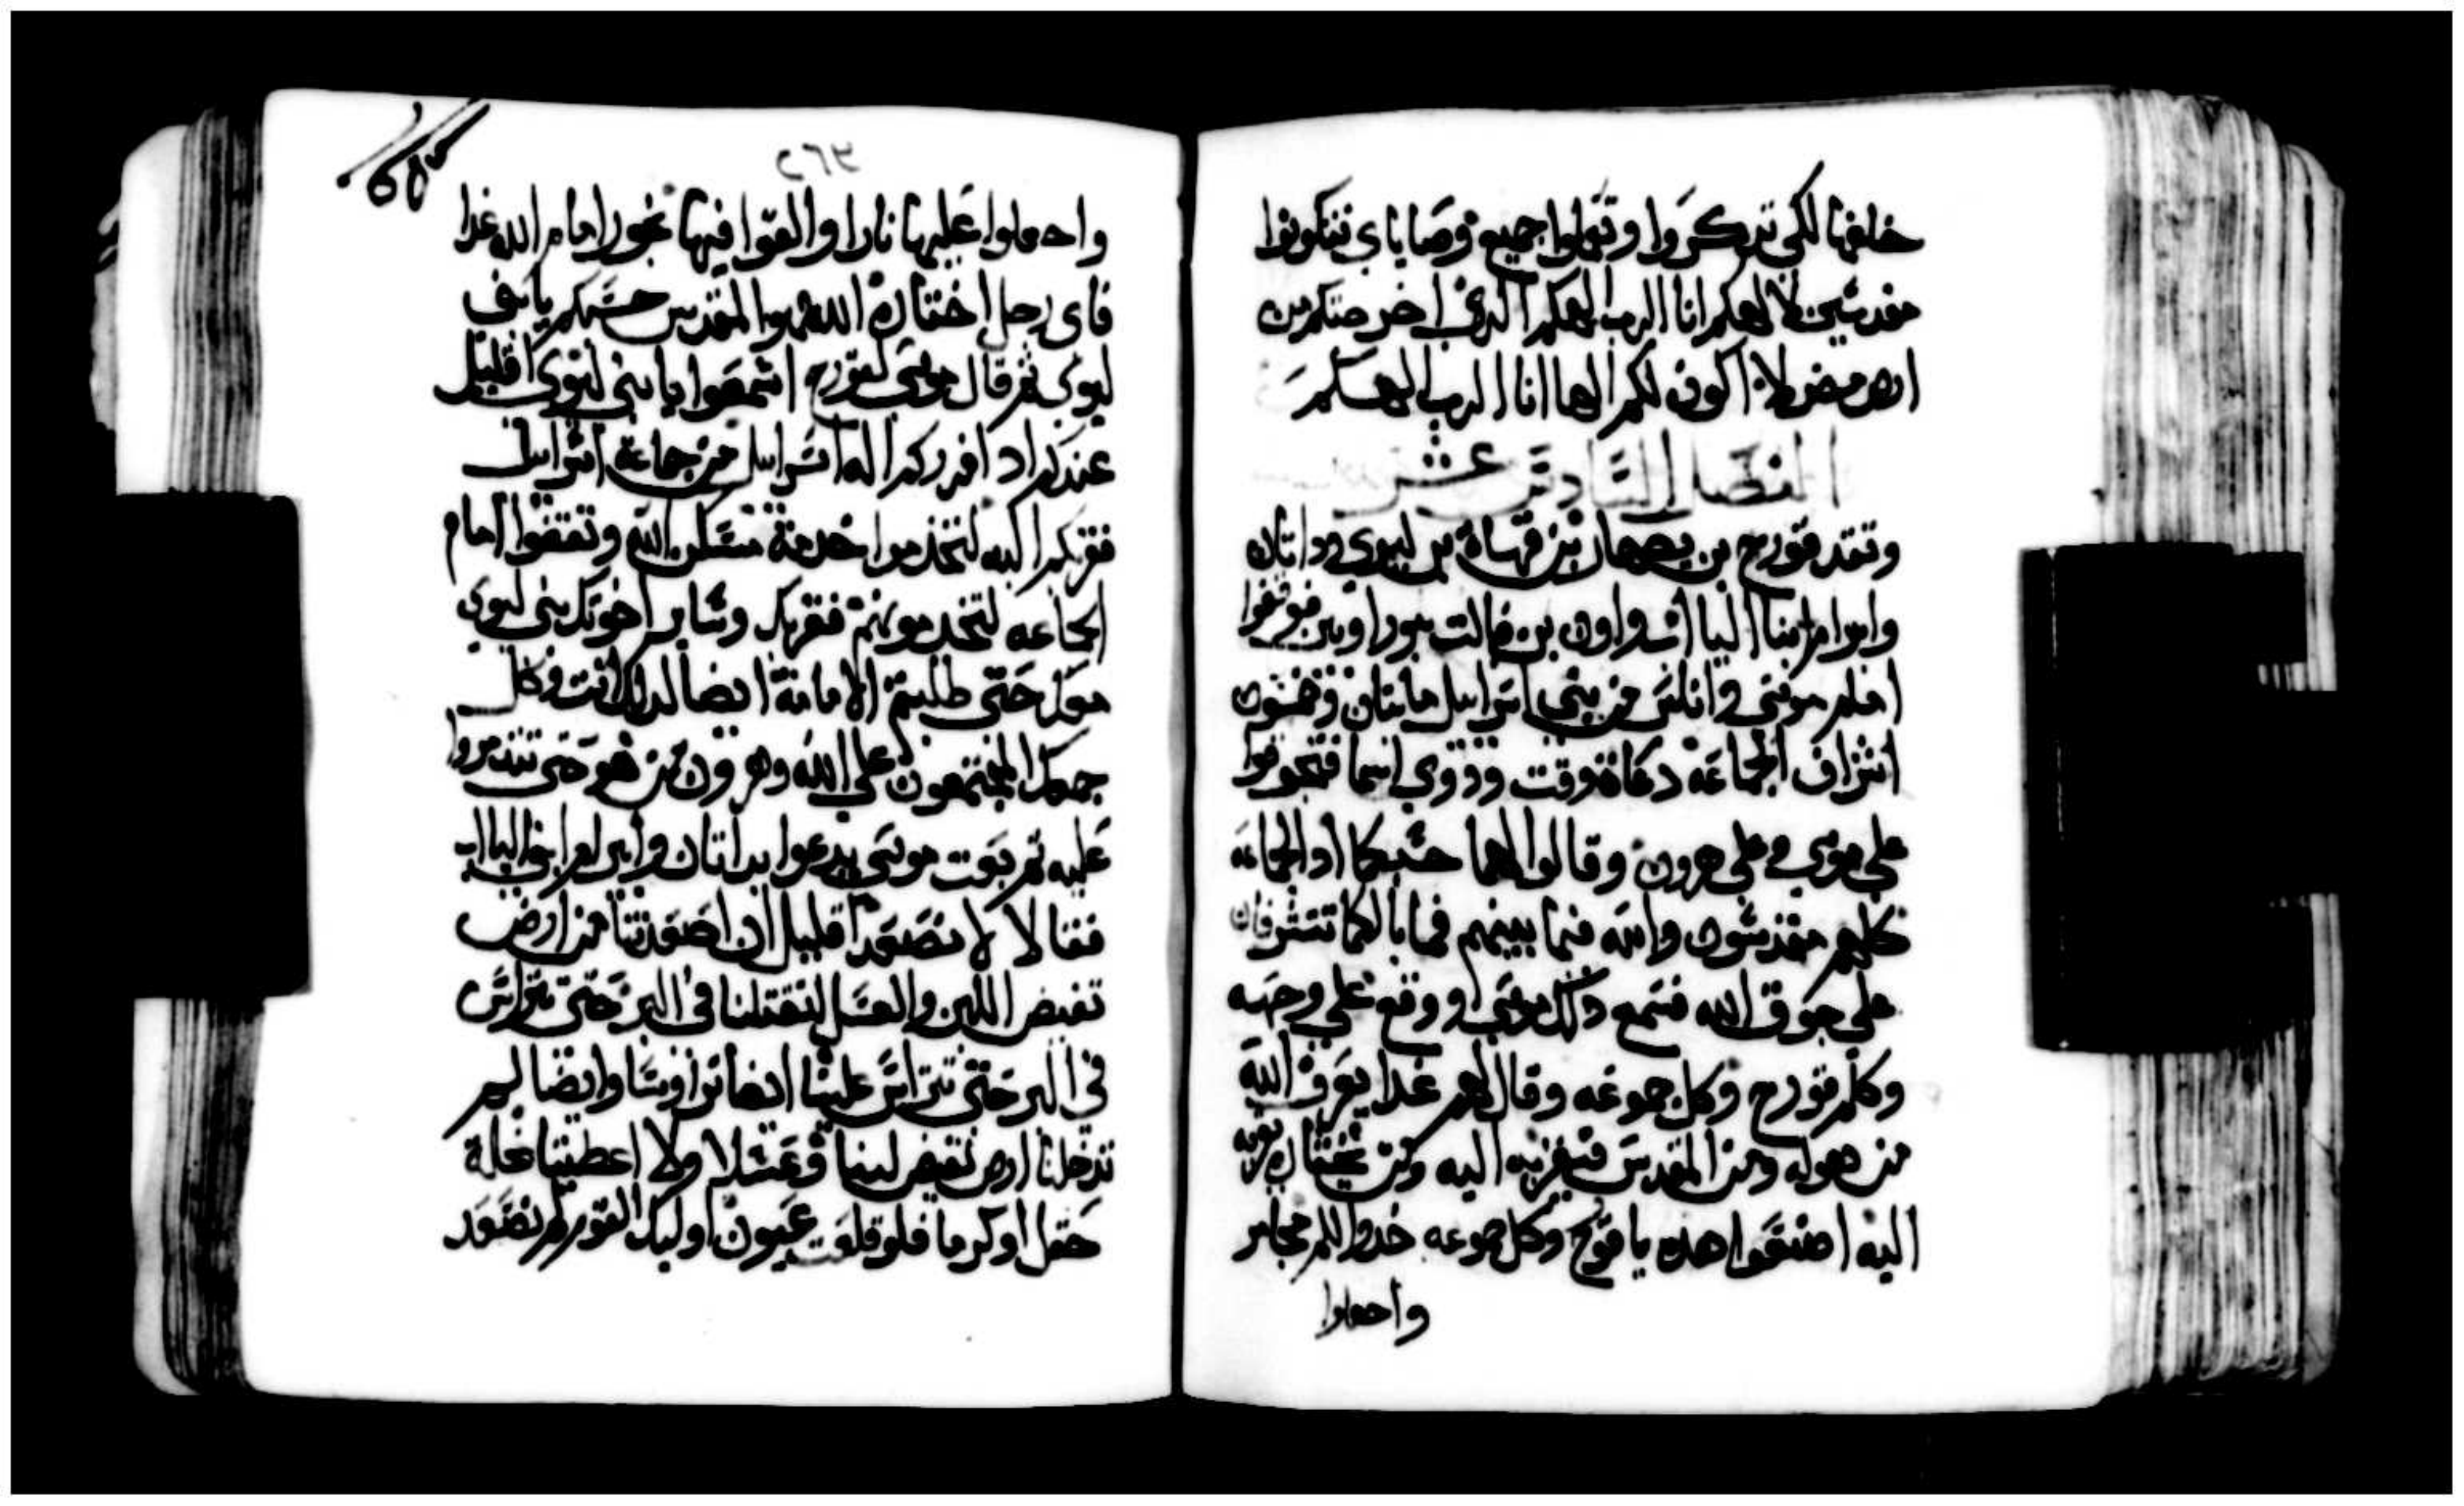 خلفها لكي تدكروا وتعملوا جميع وصاياي فتكونوا
مقدسين لالهكم انا الرب الهكم الذي اخرجتكم من
ارض مصر لا اكون لكم الها انا الرب الهكم
الفصل السادس عشر
وتقدم قورح بن يصهار بن قهاة بن ليوي وداتان
وابيرام ابنا اليا اب واون بن فالت بنو راوبين فوقفوا
امام موسي واناس من بني اسرايل مايتان وخمسون
اشراف الجماعه دعاة وقت وذوي اسما فتجوقوا
علي موسي وعلي هرون وقالوا لهما حسبكما اد الجماعه
كلهم مقدسون والله فيما بينهم فما بالكما تتشرفان
علي جوق الله فسمع دلك موسي ووقع علي وجهه
وكلم قورح وكل جموعه وقال لهم غدا يعرف الله
من هوله ومن المقدس فيقربه اليه ومن يختاره يقربه
اليه اصنعوا هده يا قورح وكل جموعه خدوا لكم مجامر
واجعلوا
٢٦٥
واجعلوا عليها نارا والقوا فيها بخورا امام الله غدا
فاي رجل اختاره الله هو المقدس حسبكم يا بني
ليوي ثم قال موسي لقورح اسمعوا يا بني ليوي اقليل
عندكم اد افرزكم اله اسرايل من جماعة اسرايل
فقربكم اليه لتخدموا خدمة مسكن الله وتقفوا امام
الجماعه لتخدمونهم فقربك وساير اخوتك بني ليوي
معك حتي طلبتم الامامة ايضا لدلك انت وكل
جمعك المجتمعون علي الله وهرون من هو حتي تتذمروا
عليه ثم بعت موسي يدعوا بداتان وابيرام ابني الياب
فقالا لا نصعد اقليل ان اصعدتنا من ارض
تفيض اللبن والعسل لتقتلنا في البر حتي تتراس
في البر حتي تتراس علينا ايضا تراوسا وايضا لم
تدخلنا ارض تفيض لبنا وعسلا ولا اعطيتنا نحلة
حقل او كرما فلو قلعت عيون اوليك القوم لم نصعد